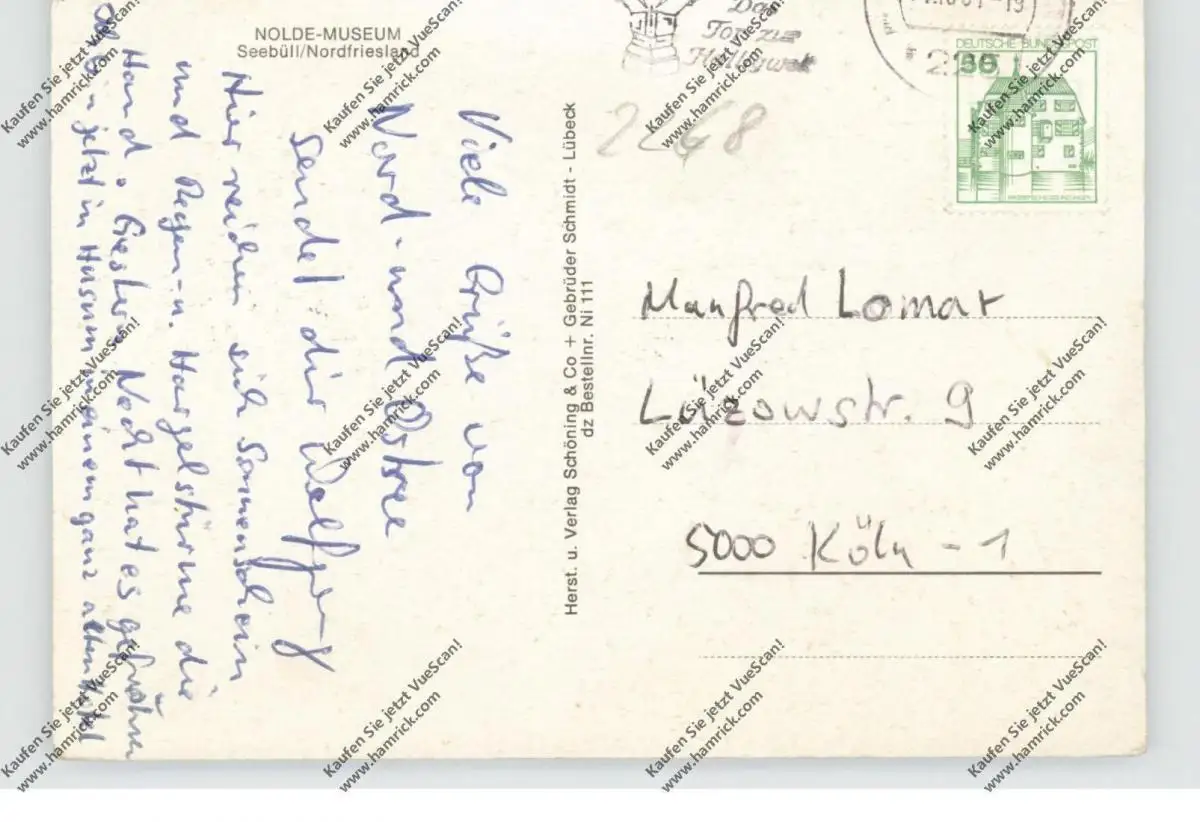 NOLDE-MUSEUM
Seebüll/Nordfriesland
Viele Grüße von
Nord- und Ostsee
sendet dir Wolfgang
Hier reichen sich Sonnenschein
und Regen- u. Hagelstürme die
Hand. Gestern Nacht hat es gefroren
bin jetzt in Husum in einem ganz alten Hotel
Herst. u. Verlag Schöning & Co + Gebrüder Schmidt - Lübeck
dz Bestellnr. Ni 111
Das
Tor zur
Halligwelt
DEUTSCHE BUNDESPOST
2268
Manfred Lomat
Lützowstr. 9
5000 Köln - 1
Kaufen Sie jetzt VueScan!
www.hamrick.com